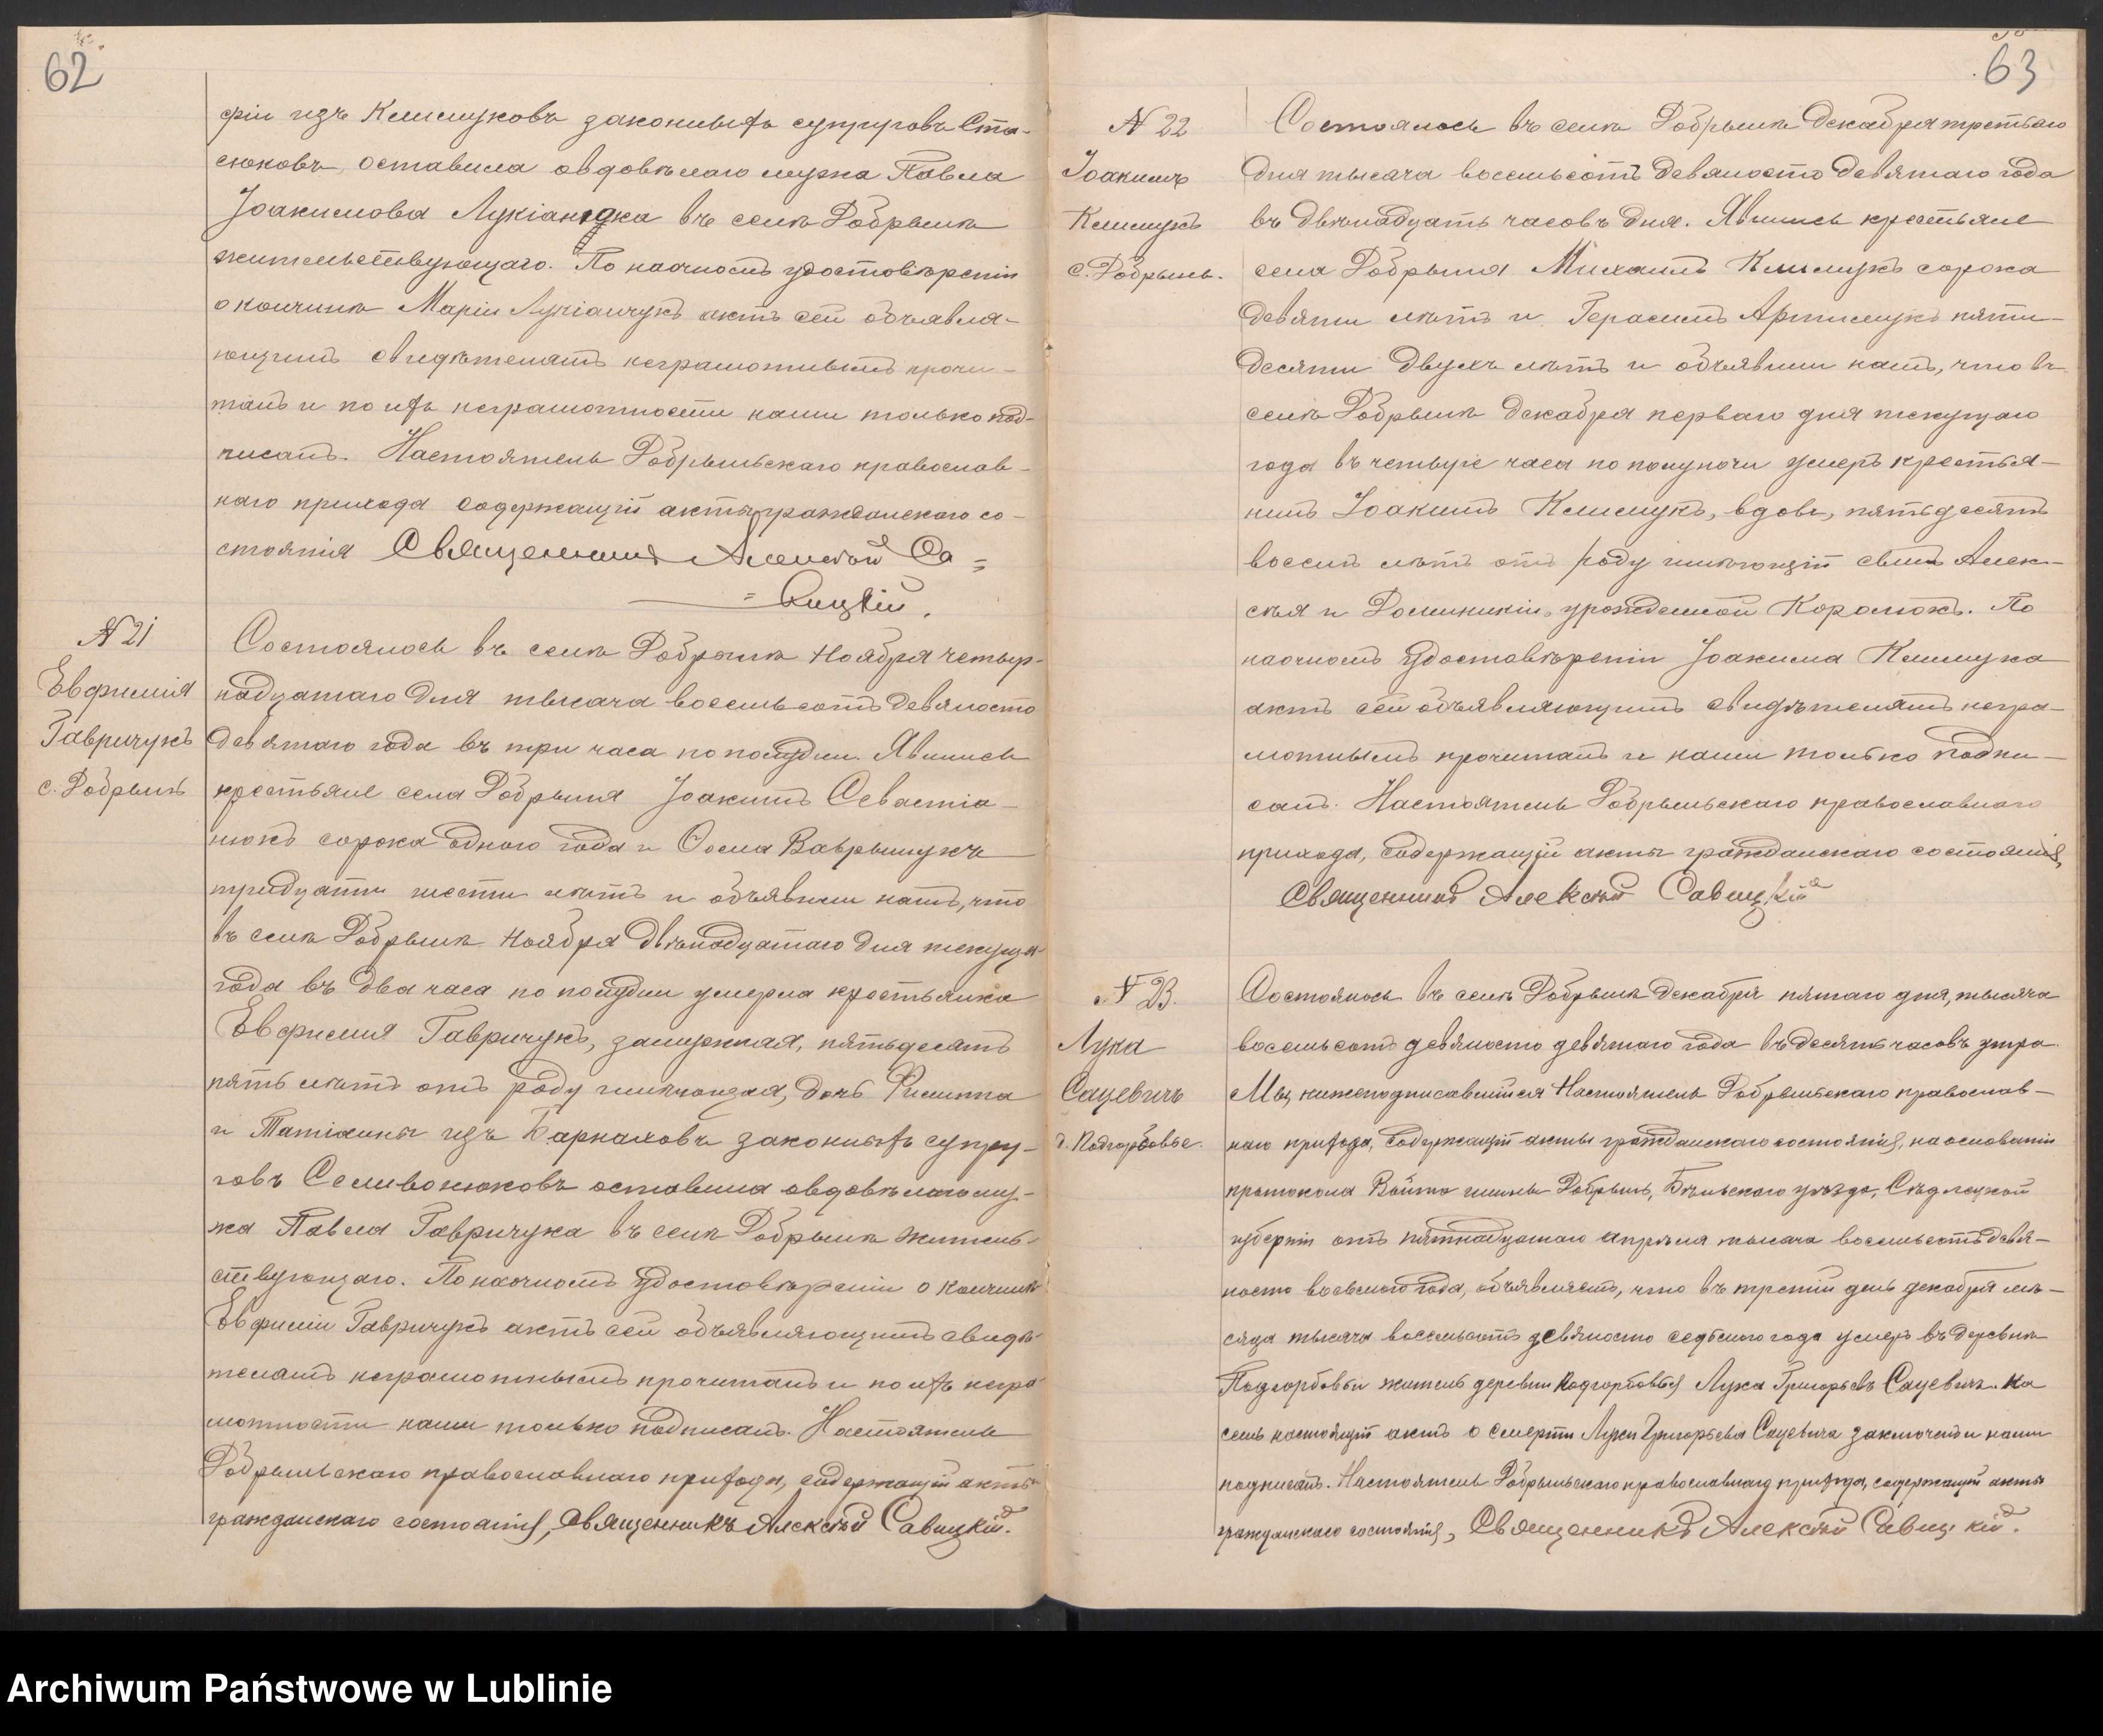 62
фіи изъ Климуковъ законныхъ супруговъ Ста-
сюковъ, оставила овдовѣлаго мужа Павла
Іоакимова Лукіанчука въ селѣ Добрынѣ
жительствующаго. По наочномъ удостовѣреніи
о кончинѣ Маріи Лукіанчукъ актъ сей объявля-
ющимъ свидѣтелямъ неграмотнымъ прочи-
танъ и по ихъ неграмотности нами только под-
писанъ. Настоятель Добрыньскаго православ-
наго прихода содержащій акты гражданскаго со-
стоянія Священникъ Алексѣй Са=
=вицкій.
N 21
Евфимія
Гавричукъ
с. Добрынь
Состоялось въ селѣ Добрынѣ Ноября четыр-
надцатаго дня тысяча восемьсотъ девяносто
девятаго года въ три часа по полудни. Явились
крестьяне села Добрыня Іоакимъ Севастіа-
нюкъ сорока одного года и Ѳома Ваврынукъ
тридцати шести лѣтъ и объявили намъ, что
въ селѣ Добрынѣ Ноября двѣнадцатаго дня текущ.
года въ два часа по полудни умерла крестьянка
Евфимія Гавричукъ, замужняя, пятьдесятъ
пять лѣтъ отъ роду имѣющая, дочь Филиппа
и Татіанны изъ законныхъ супру-
говъ Селивонюковъ оставила овдовѣлаго му-
жа Павла Гавричука въ селѣ Добрынѣ житель-
ствующаго. По наочномъ удостовѣреніи о кончинѣ
Евфиміи Гавричукъ актъ сей объявляющимъ свидѣ-
телямъ неграмотнымъ прочитанъ и по ихъ негра-
мотности нами только подписанъ. Настоятель
Добрыньскаго православнаго прихода, содержащій акты
гражданскаго состоянія, Священникъ Алексѣй Савицкій.
63
N 22
Іоакимъ
Климукъ
с. Добрынь.
Состоялось въ селѣ Добрынѣ Декабря третьяго
дня тысяча восемьсотъ девяносто девятаго года
въ двѣнадцать часовъ дня. Явились крестьяне
села Добрыня Михаилъ Климукъ сорока
девяти лѣтъ и Герасимъ Артимукъ пяти-
десяти двухъ лѣтъ и объявили намъ, что въ
селѣ Добрынѣ Декабря перваго дня текущаго
года въ четыре часа по полуночи умеръ крестья-
нинъ Іоакимъ Климукъ, вдовъ, пятьдесятъ
восемь лѣтъ отъ роду имѣющій сынъ Алек-
сѣя и Доминикіи, урожденной Королюкъ. По
наочномъ удостовѣреніи Іоакима Климука
актъ сей объявляющимъ свидѣтелямъ негра-
мотнымъ прочитанъ и нами только подпи-
санъ. Настоятель Добрыньскаго православнаго
прихода, содержащій акты гражданскаго состоянія,
Священникъ Алексѣй Савицкій
N 23.
Лука
Сацевичъ
д. Подгорбовье.
Состоялось въ селѣ Добрынѣ Декабря пятаго дня, тысяча
восемьсотъ девяносто девятаго года въ десять часовъ утра.
Мы, нижеподписавшійся Настоятель Добрыньскаго православ-
наго прихода, содержащій акты гражданскаго состоянія, на основаніи
протокола Войта гмины Добрынь, Бѣльскаго уѣзда, Сѣдлецкой
губерніи отъ пятнадцатаго апрѣля тысяча восемьсотъ девя-
носто восьмого года, объявляемъ, что въ третій день декабря мѣ-
сяца тысяча восемьсотъ девяносто седьмого года умеръ въ деревнѣ
Подгорбовьи житель деревни Подгорбовья Лука Григорьевъ Сацевичъ. На
семъ настоящій актъ о смерти Луки Григорьева Сацевича заключенъ и нами
подписанъ. Настоятель Добрыньскаго православнаго прихода, содержащій акты
гражданскаго состоянія, Священникъ Алексѣй Савицкій.
Archiwum Państwowe w Lublinie